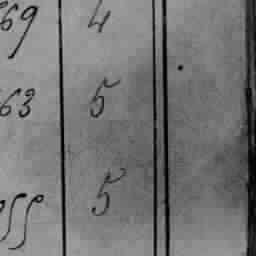 69 4
63 5
55 5